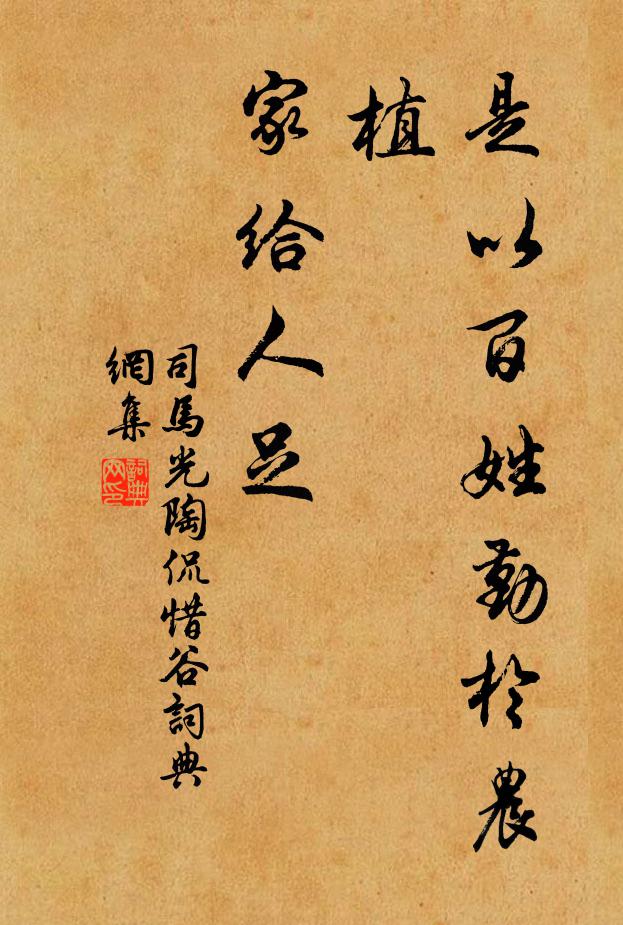 是以百姓勤於農
植
家給人足
司馬光陶侃惜谷詞典
網集
詞典网印